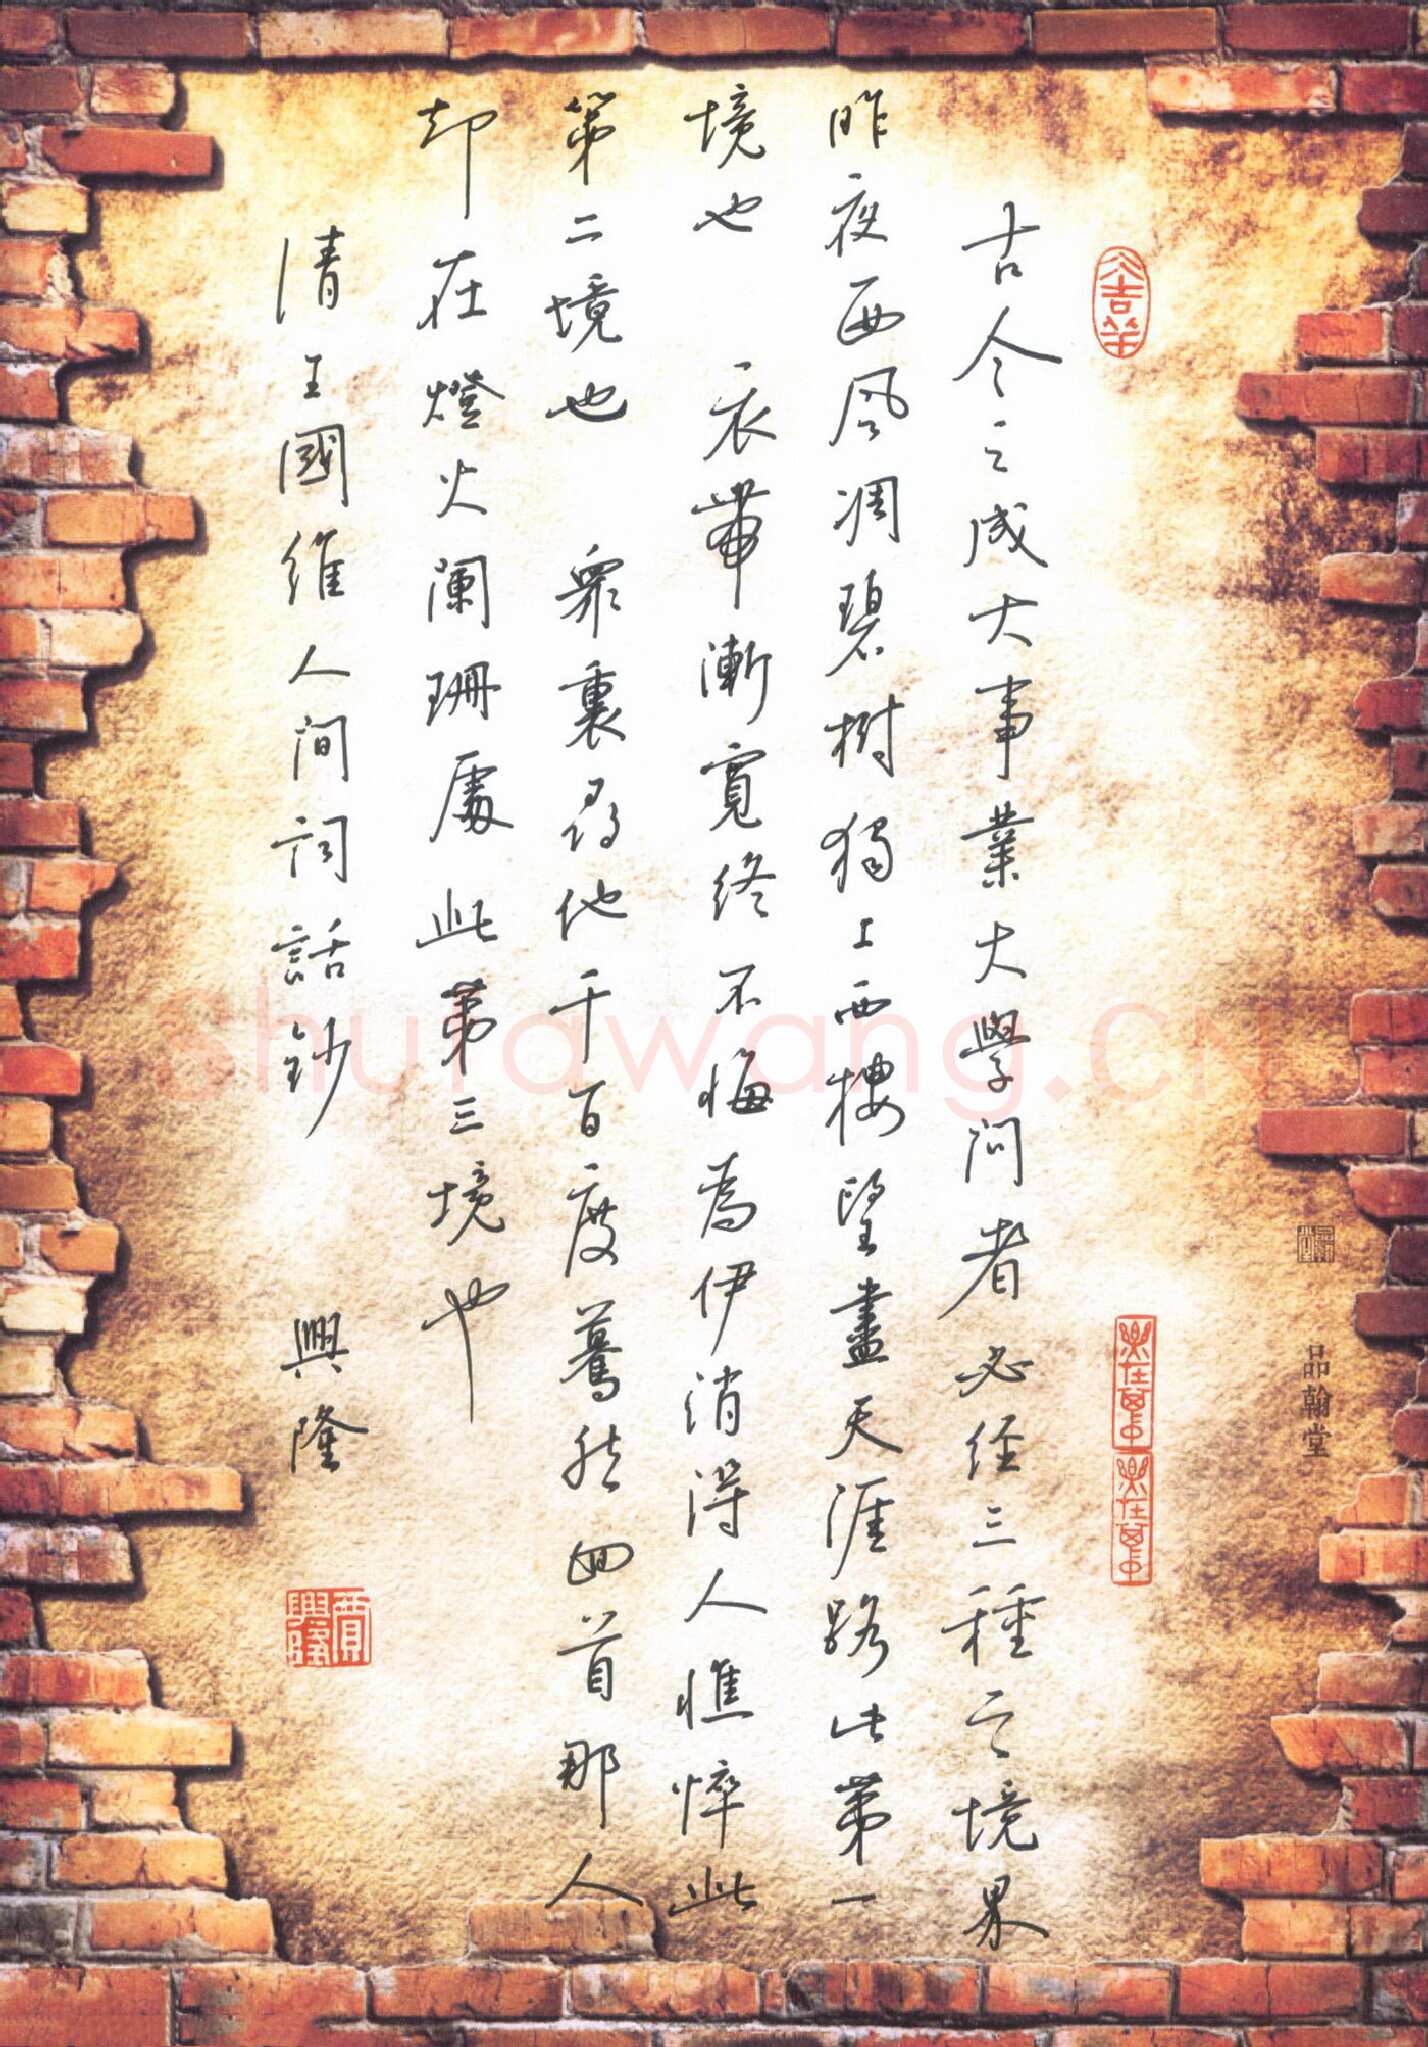 古今之成大事業大學問者必经三種之境界
昨夜西风凋碧树獨上西樓望盡天涯路此第一
境也 衣帶漸寬终不悔為伊消得人憔悴此
第二境也 眾裏尋他千百度驀然回首那人
却在燈火闌珊處此第三境也
清王國維人间词話鈔 興隆
賈興隆
品翰堂
shufawang.CN